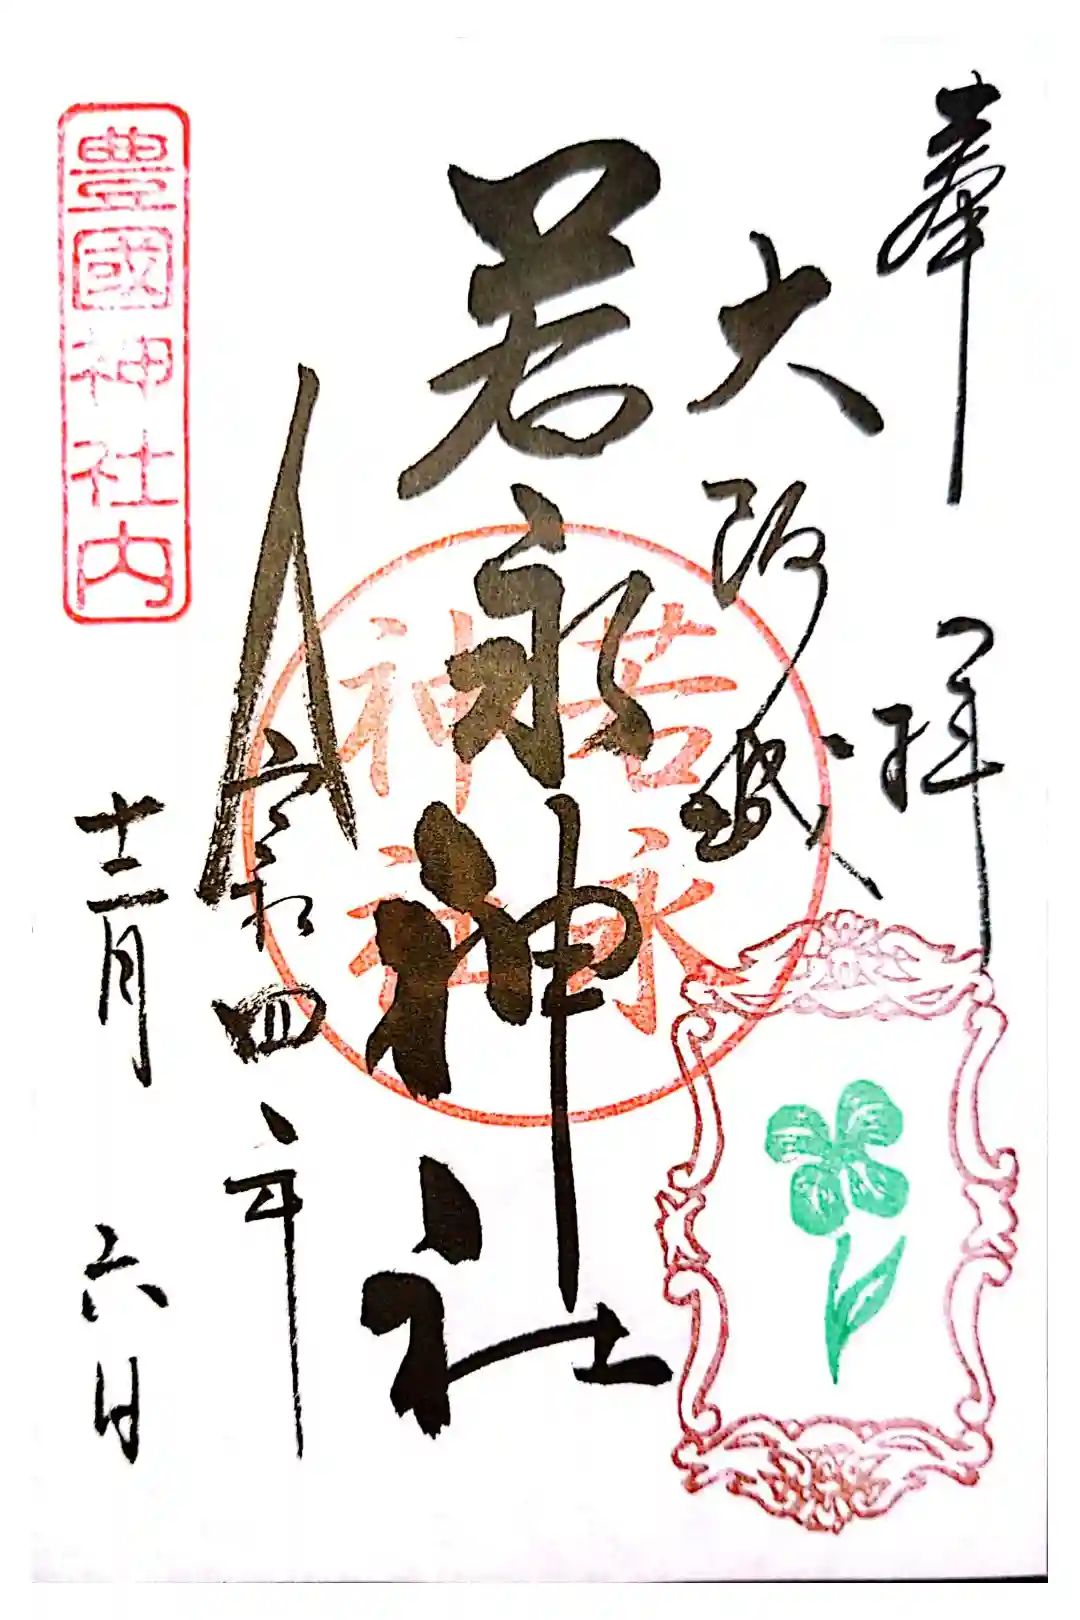 奉拝
大阪城
若永神社
令和四年
十二月六日
豊國神社内
若永
神社